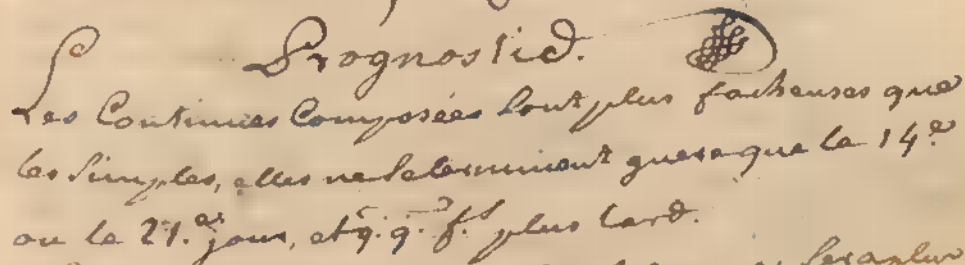 Prognostic.
Les Continues Composées sont plus facheuses que
les simples, elles ne se terminent guere que le 14.e
ou le 21.e jour, et q.q. f.s plus tard.
sera plus